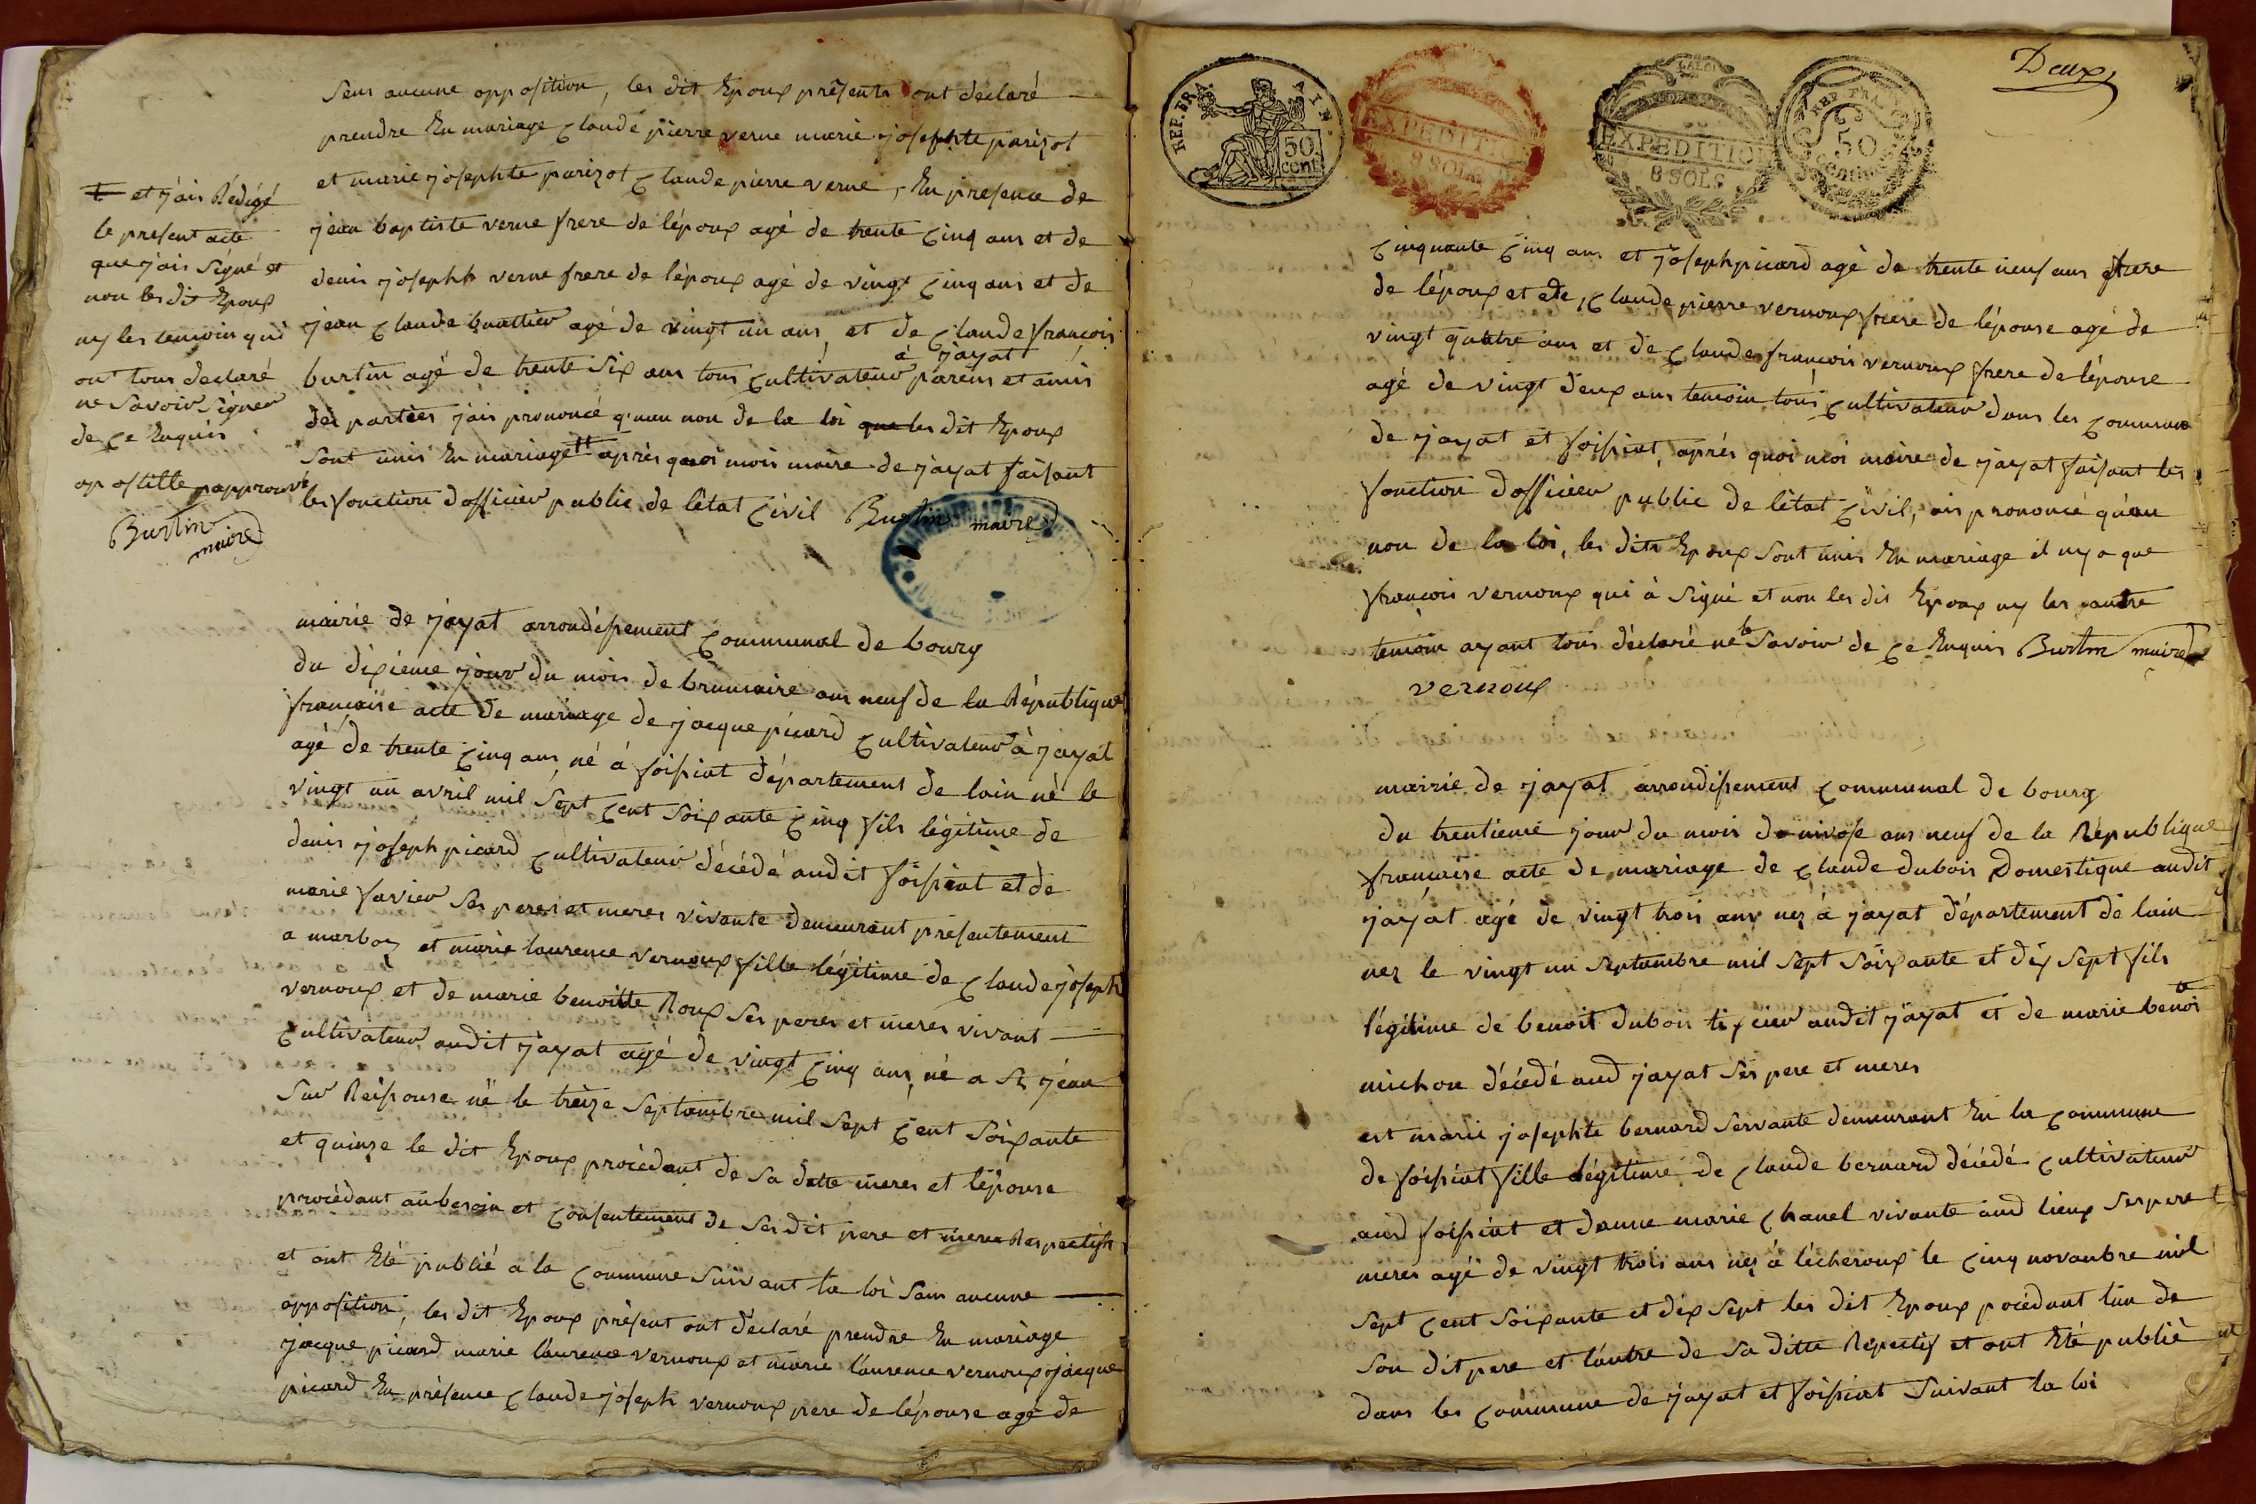 sens aucune opposition, les dit Epoux présents ont declaré
prendre En mariage Claude pierre verne marie josephte parizot
et marie josephte parizot Claude pierre verne, En presence de
jean baptiste verne frere de lépoux agé de trente Cinq ans et de
denis josephh verne frere de lépoux agé de vingt Cinq ans et de
jean Claude buattier agé de vingt un ans, et de Claude françois
à jayat
burtin agé de trente Six ans tous Cultivateur parens et amis
des parties jais prononcé qu'au non de la loi que les dit Epoux
sont unis En mariage aprés quoi mois maire de jayat faisant
les fonction dofficier public de létat Civil Burtin maire
t et jais Rédigé
le present acte
que jais Signé et
non les dit Epoux
ny les temoin qui
ont tous declaré
ne Savoir Signer
de Ce Enquis
apostille papprouvé
Burtin
maire
mairie de jayat arrondissement Communal de bourg
du dixieme jour du mois de brumaire ans neuf de la République
française acte de mariage de jacque picard Cultivateur à jayat
agé de trente Cinq ans, né à foissiat département de lain né le
vingt un avril mil Sept Cent Soixante Cinq fils légitime de
denis joseph picard Cultivateur décédé audit foissiat et de
marie favier Ses peres et meres vivante demeurant présentement
a marboz et marie laurence vernoux fille légitime de Claude joseph
vernoux et de marie benoitte Roux Ses peres et meres vivant
Cultivateur audit jayat agé de vingt Cinq ans, né a St jean
Sur Reissouse né le treize Septambre mil Sept Cent Soixante
et quinze le dit Epoux procédant de Sa ditte meres et lépouse
procédant au besoin et Consentement de Ses dit pere et meres Respectifs
et ont Eté publié à la Commune Suivant la loi Sans aucune
opposition, les dit Epoux présent ont déclaré prendre En mariage
jacque picard marie laurence vernoux et marie laurence vernoux jacque
picard En présence Claude joseph vernoux pere de lépouse agé de
REP. FRA. AIN.
50 cent
EXPEDITION
8 SOLS
EXPEDITION
8 SOLS
REP. FRA.
50
Centimes
Deux
Cinquante Cinq ans et joseph picard agé de trente neuf ans frere
de lépoux et de, Claude pierre vernoux frere de lépouse agé de
vingt quatre ans et de Claude françois vernoux frere de lépouse
agé de vingt deux ans temoin tous Cultivateur dans les Commune
de jayat et foissiat, aprés quoi moi maire de jayat faisant les
fonction dofficier public de létat Civil, ais prononcé qu'au
non de la loi, les dits Epoux Sont unis En mariage il ny a que
françois vernoux qui à Signé et non les dis Epoux ny les autre
temoin ayant tous déclaré ne le Savoir de Ce Enquis Burtin maire
vernoux
mairie de jayat arrondissement Communal de bourg
du trentieme jour du mois de nivose ans neuf de la République
française acte de mariage de Claude dubois Domestique audit
jayat agé de vingt trois ans nez à jayat département de lain
nez le vingt un Septembre mil Sept Soixante et dix Sept fils
légitime de benoit dubois ticier audit jayat et de marie benoite
michon décédé aud jayat Ses pere et meres
est marie josephte bernard Servante demeurant En la Commune
de foissiat fille légitime de Claude bernard décédé Cultivateur
aud foissiat et danne marie Chanel vivante aud lieux Ses pere t
meres agé de vingt trois ans nez à lécheroux le Cinq novanbre mil
Sept Cent Soixante et dix Sept les dit Epoux pocédant lun de
Son dit pere et lautre de Sa ditte Répectif et ont Eté publié
dans les Commune de jayat et foissiat Suivant la loi